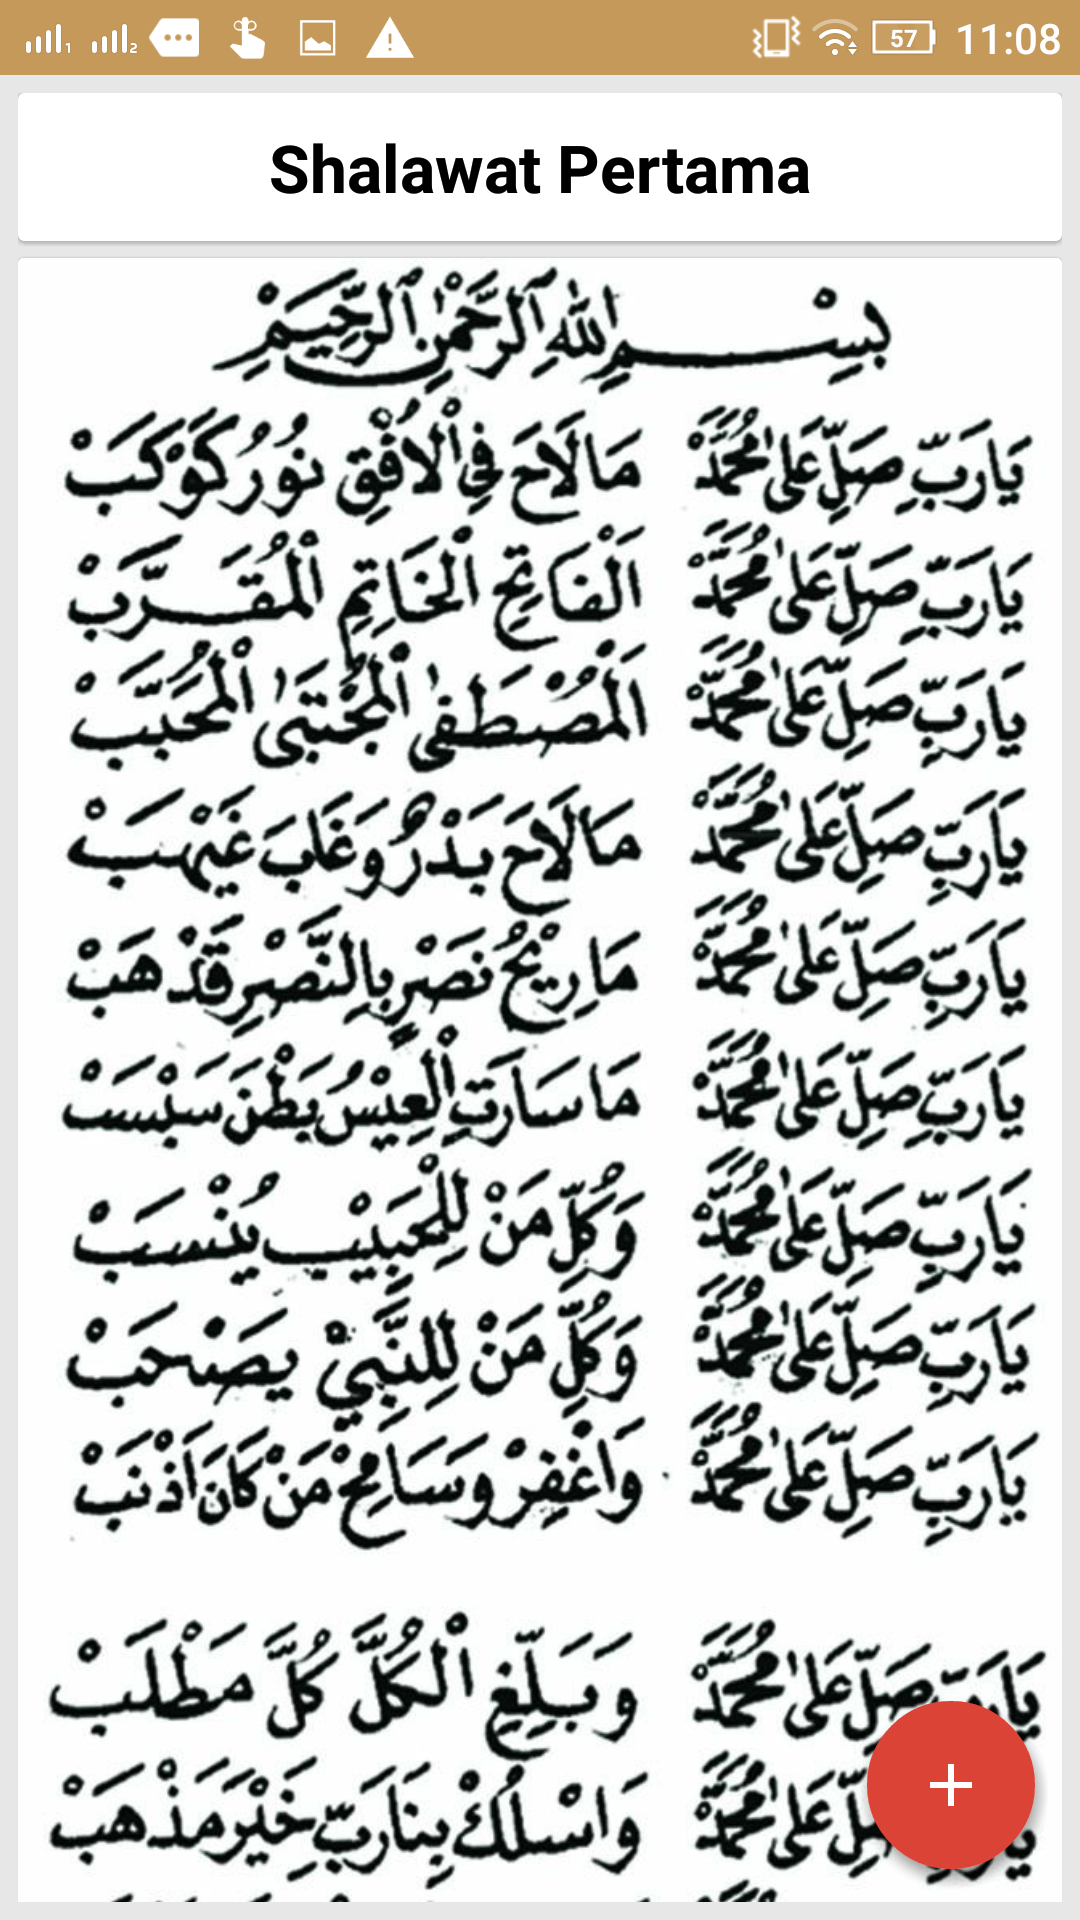 11:08
57
Shalawat Pertama
بِسْمِ اللهِ الرَّحْمٰنِ الرَّحِيْمِ
يَارَبِّ صَلِّ عَلىٰ مُحَمَّدْ مَالَاحَ فِي الْاُفْقِ نُوْرُ كَوْكَبْ
يَارَبِّ صَلِّ عَلىٰ مُحَمَّدْ اَلْفَاتِحِ الْخَاتِمِ الْمُقَرَّبْ
يَارَبِّ صَلِّ عَلىٰ مُحَمَّدْ اَلْمُصْطَفىٰ الْمُجْتَبىٰ الْمُحَبَّبْ
يَارَبِّ صَلِّ عَلىٰ مُحَمَّدْ مَالَاحَ بَدْرٌ وَغَابَ غَيْهَبْ
يَارَبِّ صَلِّ عَلىٰ مُحَمَّدْ مَارِيْحُ نَصْرٍ بِالنَّصْرِ قَدْهَبْ
يَارَبِّ صَلِّ عَلىٰ مُحَمَّدْ مَاسَارَتِ الْعِيْسُ بَطْنَ سَبْسَبْ
يَارَبِّ صَلِّ عَلىٰ مُحَمَّدْ وَكُلِّ مَنْ لِلْحَبِيْبِ يُنْسَبْ
يَارَبِّ صَلِّ عَلىٰ مُحَمَّدْ وَكُلِّ مَنْ لِلنَّبِيْ يَصْحَبْ
يَارَبِّ صَلِّ عَلىٰ مُحَمَّدْ وَاغْفِرْ وَسَامِحْ مَنْ كَانَ اَذْنَبْ
يَارَبِّ صَلِّ عَلىٰ مُحَمَّدْ وَبَلِّغِ الْكُلَّ كُلَّ مَطْلَبْ
يَارَبِّ صَلِّ عَلىٰ مُحَمَّدْ وَاسْلُكْ بِنَارَبِّ خَيْرَ مَذْهَبْ